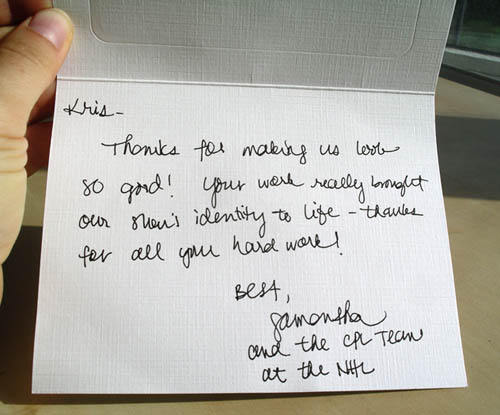 Kris-
Thanks for making us look
so good! Your work really brought
our show's identity to life - thanks
for all your hard work!
Best,
Samantha
and the CPL Team
at the NHL